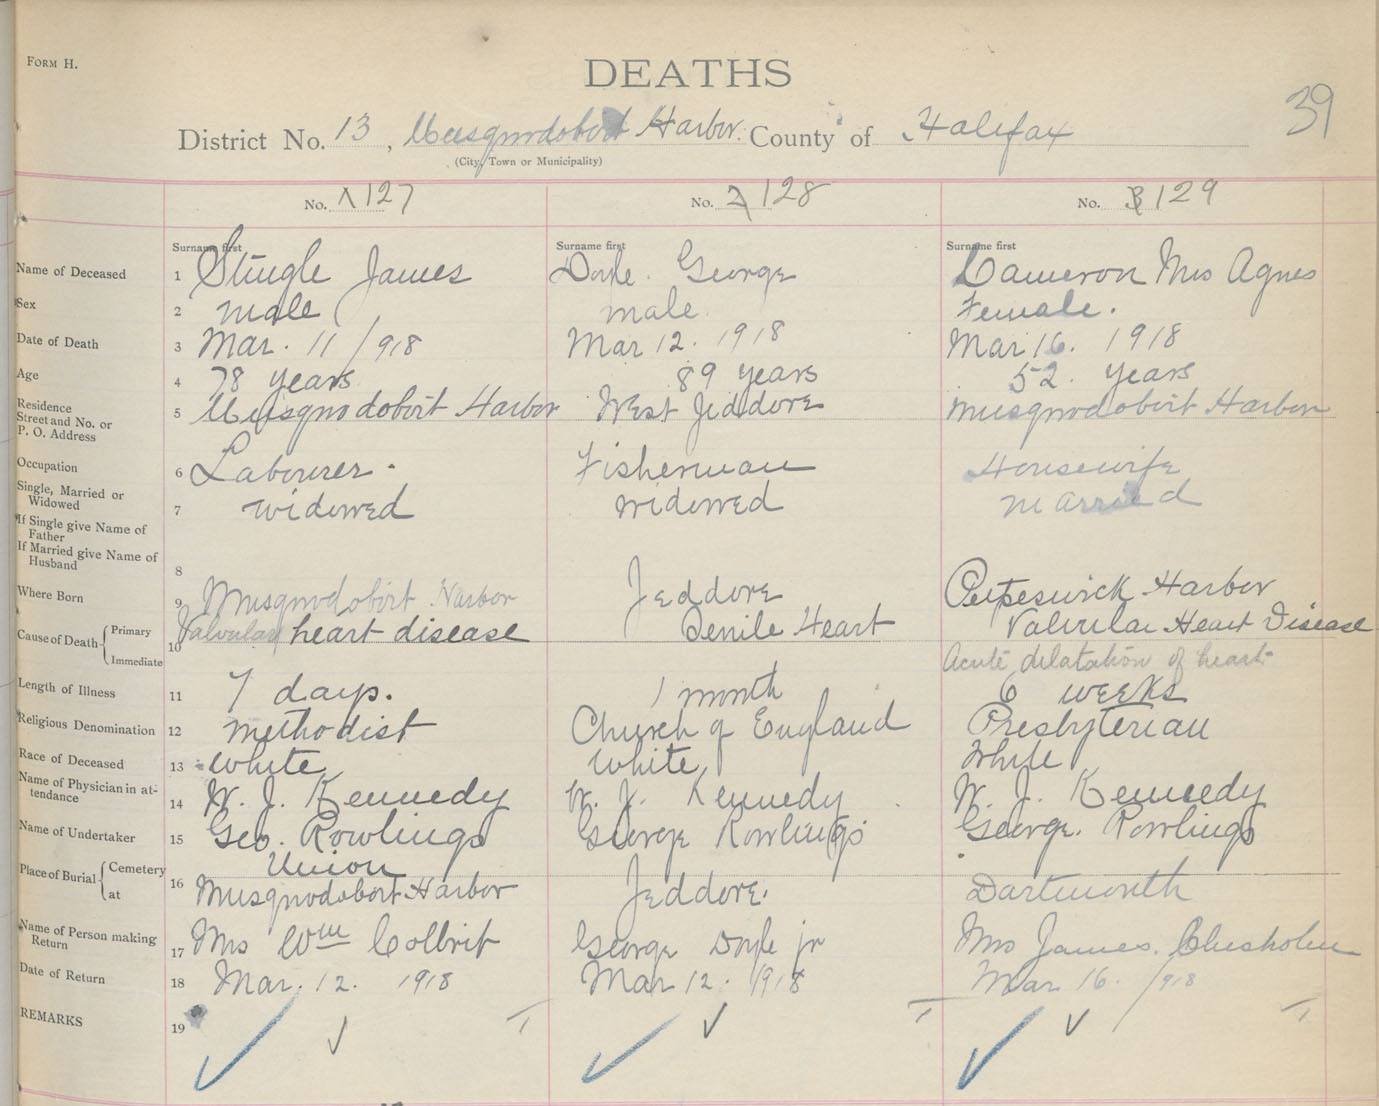 FORM H.
DEATHS
39
District No. 13, Musqnodoboit Harbor. County of Halifax
(City, Town or Municipality)
No. 1 127
No. 2 128
No. 3 129
Surname first Surname first Surname first
Name of Deceased 1 Stingle James Doyle. George Cameron Mrs Agnes
Sex 2 male male Female.
Date of Death 3 Mar. 11/918 Mar 12. 1918 Mar 16. 1918
Age 4 78 years 89 years 52. years
Residence Street and No. or P. O. Address 5 Musqnodoboit Harbor West Jeddore Musqnodoboit Harbor
Occupation 6 Labourer. Fisherman Housewife
Single, Married or Widowed 7 widowed widowed married
If Single give Name of Father
If Married give Name of Husband 8
Where Born 9 Musqnodoboit Harbor Jeddore Petpeswick Harbor
Cause of Death Primary 10 Valvular heart disease Senile Heart Valvular Heart Disease
Immediate Acute dilatation of heart
Length of Illness 11 7 days. 1 month 6 weeks
Religious Denomination 12 methodist Church of England Presbyterian
Race of Deceased 13 white White White
Name of Physician in attendance 14 W. J. Kennedy W. J. Kennedy W. J. Kennedy
Name of Undertaker 15 Geo. Rowlings George Rowlings George. Rowlings
Place of Burial Cemetery 16 Union
at Musqnodoboit Harbor Jeddore. Dartmouth
Name of Person making Return 17 Mrs Wm Colbrit George Doyle jr Mrs James. Chisholm
Date of Return 18 Mar. 12. 1918 Mar 12. 1918 Mar 16. /918
REMARKS 19